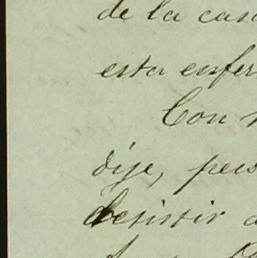 de la cas
esta enfer
Con
dije, pers
desistir a